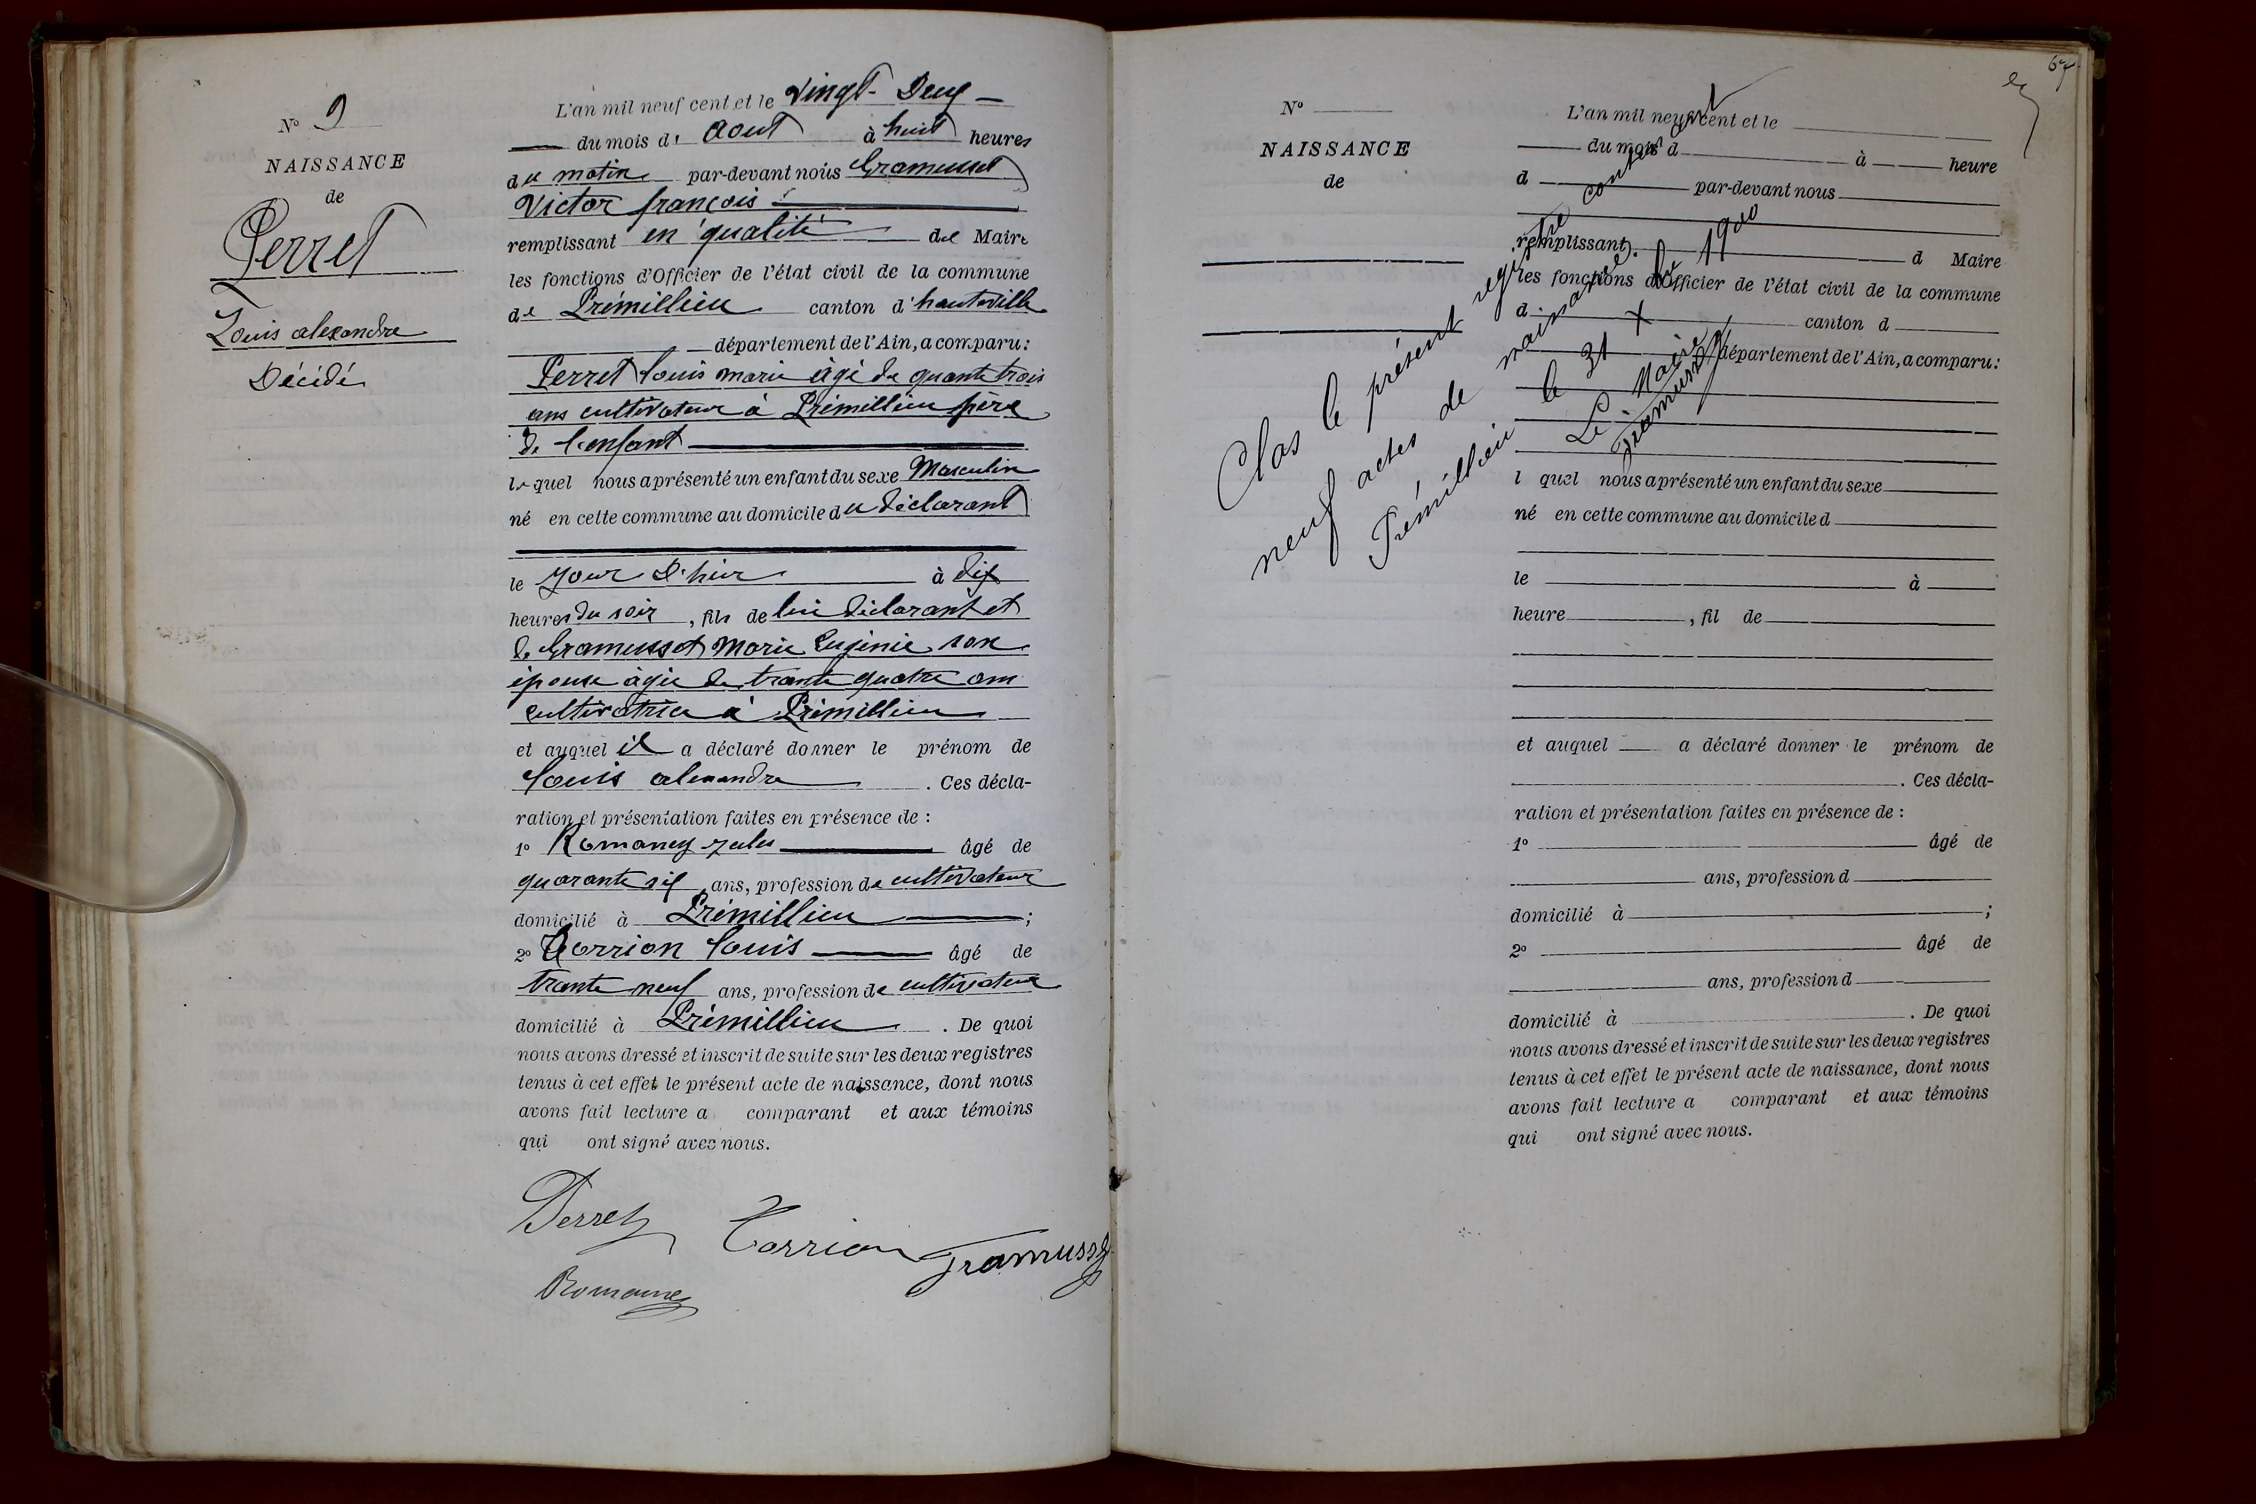 N° 9
NAISSANCE
de
Perret
Louis alexandre
Décédé
L'an mil neuf cent et le vingt-Deux
du mois d' aout à huit heures
du matin par-devant nous Gramusset
Victor françois
remplissant en qualité de Maire
les fonctions d'Officier de l'état civil de la commune
de Prémillieu canton d'hauteville
département de l'Ain, a comparu:
Perret Louis marie âgé de quante trois
ans cultivateur à Prémillieu père
de l'enfant
lequel nous a présenté un enfant du sexe Masculin
né en cette commune au domicile du déclarant
le jour d'hier à dix
heures du soir, fils de lui déclarant et
de Gramusset Marie Eugénie son
épouse âgée de trante quatre ans
cultivatrice à Prémillieu
et auquel il a déclaré donner le prénom de
Louis alexandre. Ces décla-
ration et présentation faites en présence de :
1° Romaney Jules âgé de
quarante six ans, profession de cultivateur
domicilié à Prémillieu ;
2° Torrion Louis âgé de
trante neuf ans, profession de cultivateur
domicilié à Prémillieu. De quoi
nous avons dressé et inscrit de suite sur les deux registres
tenus à cet effet le présent acte de naissance, dont nous
avons fait lecture a comparant et aux témoins
qui ont signé avec nous.
Perret Torrion Gramusset
Romaney
67
N°
NAISSANCE
de
L'an mil neuf cent et le
du mois d à heure
d par-devant nous
remplissant d Maire
les fonctions d'Officier de l'état civil de la commune
d canton d
département de l'Ain, a comparu:
l quel nous a présenté un enfant du sexe
né en cette commune au domicile d
le à
heure , fil de
et auquel a déclaré donner le prénom de
. Ces décla-
ration et présentation faites en présence de :
1° âgé de
ans, profession d
domicilié à ;
2° âgé de
ans, profession d
domicilié à . De quoi
nous avons dressé et inscrit de suite sur les deux registres
tenus à cet effet le présent acte de naissance, dont nous
avons fait lecture a comparant et aux témoins
qui ont signé avec nous.
Clos le présent registre contenant
neuf actes de naissance.
Prémillieu le 31 Xbre 1900
Le Maire
Gramusset